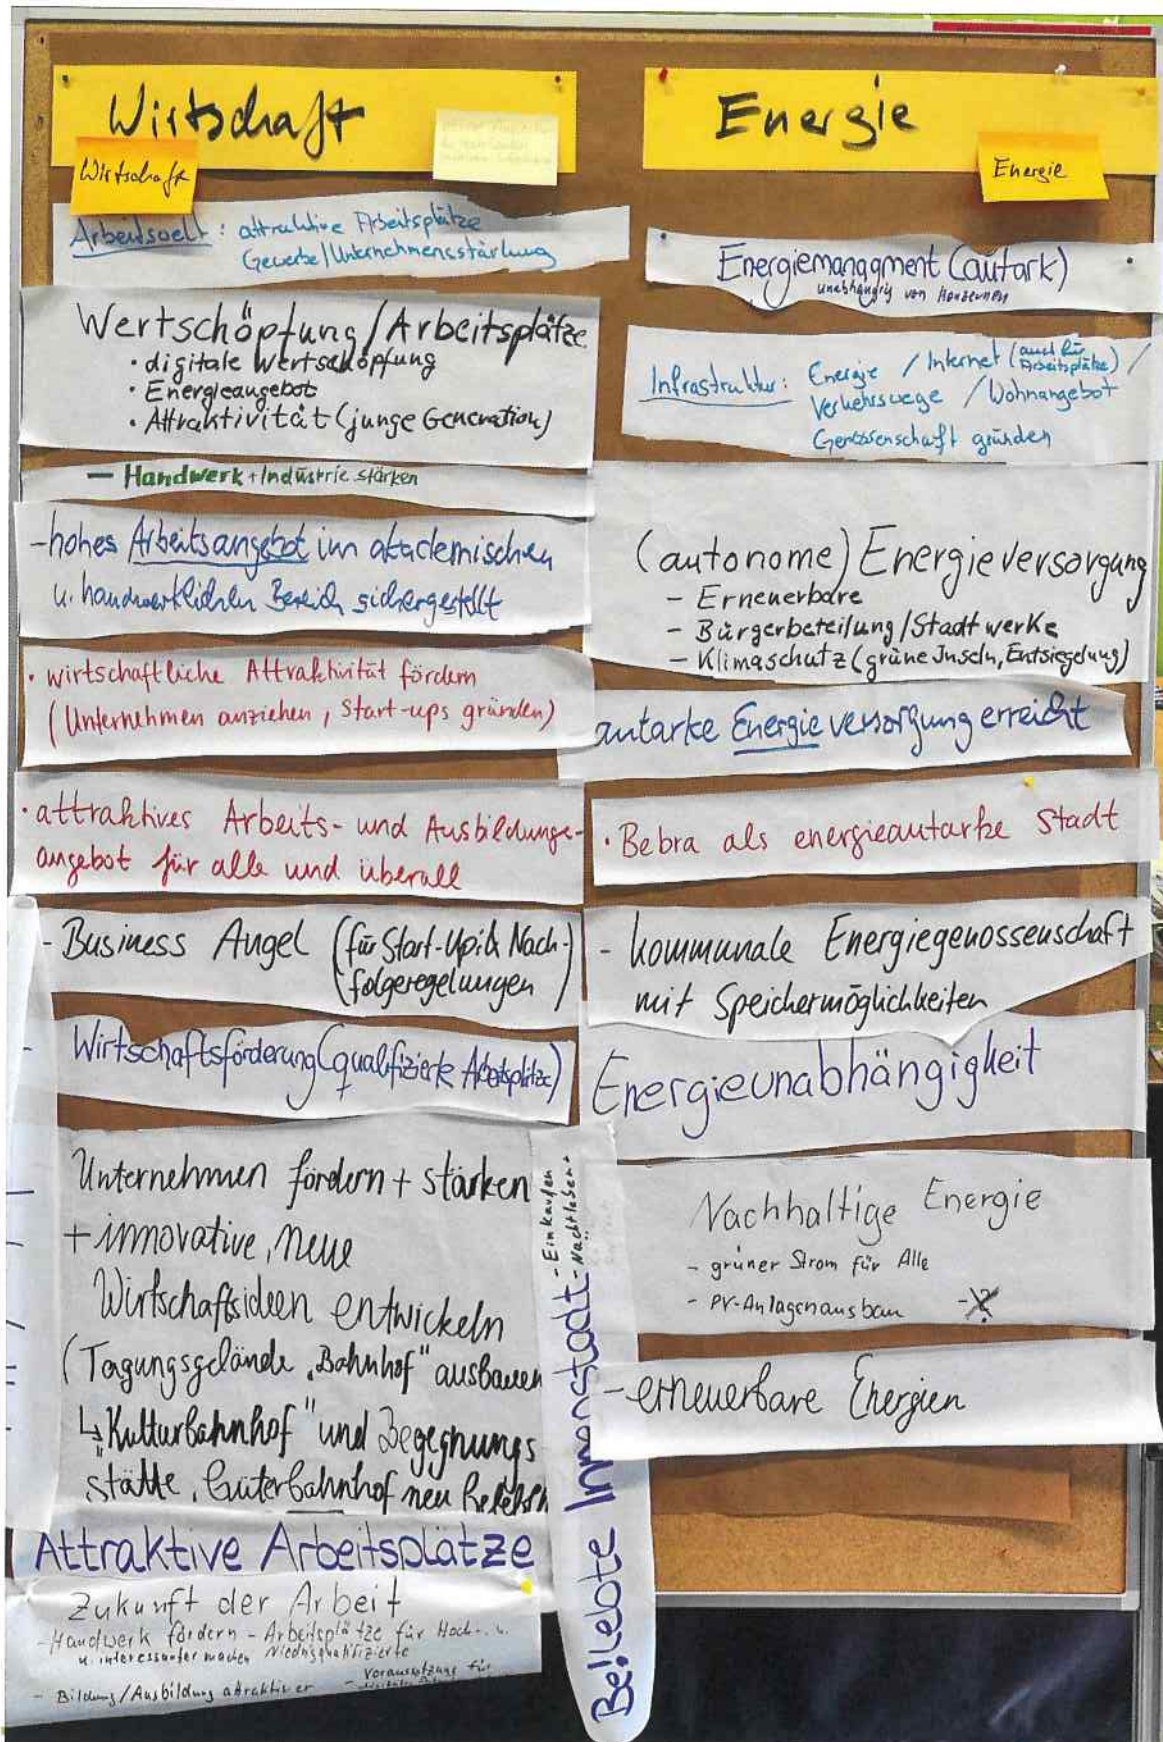 Wirtschaft
Wirtschaft
Arbeitswelt: attraktive Arbeitsplätze
Gewerbe/Unternehmensstärkung
Wertschöpfung/Arbeitsplätze
· digitale Wertschöpfung
· Energieangebot
· Attraktivität (junge Generation)
– Handwerk + Industrie stärken
- hohes Arbeitsangebot im akademischen
u. handwerklichen Bereich sichergestellt
· wirtschaftliche Attraktivität fördern
(Unternehmen anziehen, Start-ups gründen)
· attraktives Arbeits- und Ausbildungs-
angebot für alle und überall
- Business Angel (für Start-Up & Nach-
folgeregelungen)
Wirtschaftsförderung (qualifizierte Arbeitsplätze)
Unternehmen fördern + stärken
+ innovative, neue
Wirtschaftsideen entwickeln
(Tagungsgelände "Bahnhof" ausbauen
↳ "Kulturbahnhof" und Begegnungs
stätte, Güterbahnhof neu
Attraktive Arbeitsplätze
Zukunft der Arbeit
- Handwerk fördern - Arbeitsplätze für Hoch- u.
u. interessanter machen Niedrigqualifizierte
- Bildung/Ausbildung attraktiver - Voraussetzung für
Belebte Innenstadt
- Einkaufen
- Nachtleben
Energie
Energie
Energiemanagment (autark)
unabhängig von Konzernen
Infrastruktur: Energie / Internet (auch für Arbeitsplätze) /
Verkehrswege / Wohnangebot
Genossenschaft gründen
(autonome) Energieversorgung
- Erneuerbare
- Bürgerbeteilung/Stadtwerke
- Klimaschutz (grüne Inseln, Entsiegelung)
autarke Energieversorgung erreicht
· Bebra als energieautarke Stadt
- kommunale Energiegenossenschaft
mit Speichermöglichkeiten
Energieunabhängigkeit
Nachhaltige Energie
- grüner Strom für Alle
- PV-Anlagenausbau
- erneuerbare Energien